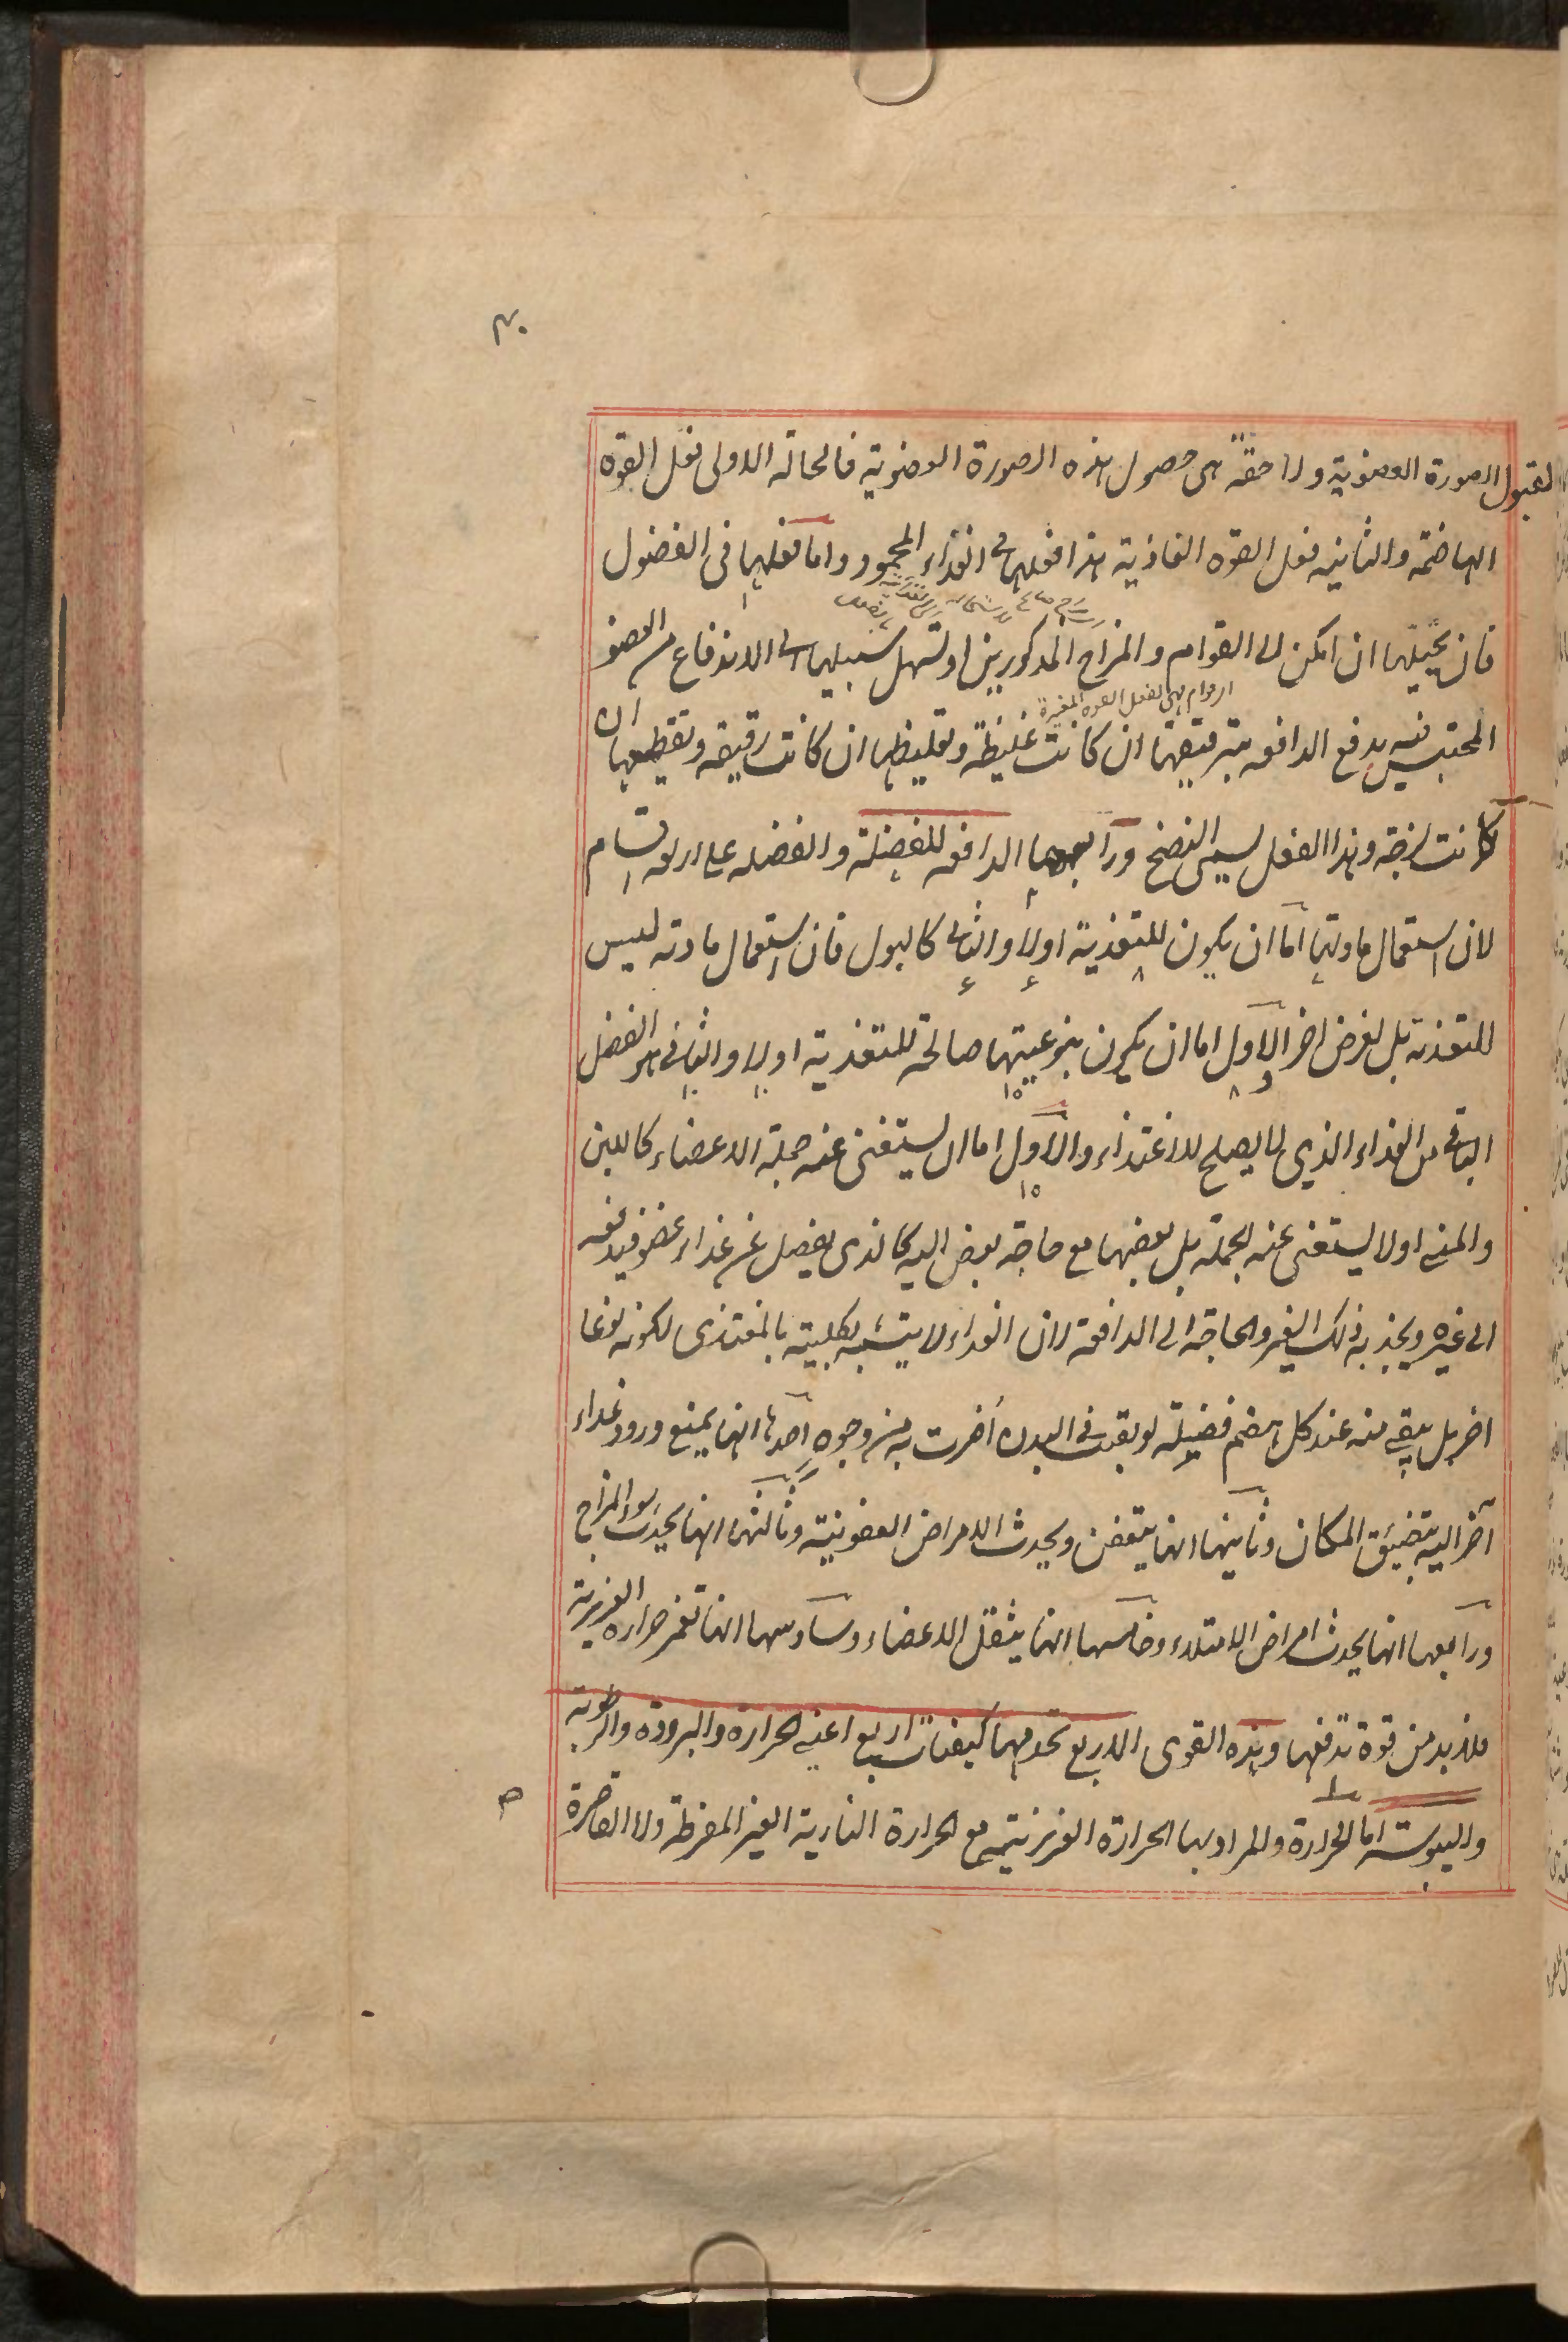 لقبول الصورة العضوية ولاحقة هى حصول هذه الصورة العضوية فالحالة الاولى فعل القوة
الهاضمة والثانيه فعل القوة الغاذية هذا فعلها فى الغذاء المحمود واما فعلها فى الفضول
فان يحيلها ان امكن الى القوام والمزاج المذكورين او تسهل سبيلها الى الاندفاع من العضو
المحتبس فيه بدفع الدافعه بترقيقها ان كانت غليظة وتغليظها ان كانت رقيقه وتقطيعها ان
كانت لزجة وهذا الفعل يسمى النضج ورابعها الدافعه للفضلة والفضله على اربعه اقسام
لان استعمال مادتها اما ان يكون للتغذية اولا والثانى كالبول فان استعمال مادته ليس
للتغذيه بل لغرض اخر الاول اما ان يكون بنوعيتها صالحة للتغذية اولا والثانى هو الفضل
الباقى من الغذاء الذى لا يصلح للاغتذاء والاول اما ان يستغنى عنه جملة الاعضاء كاللبن
والمنى اولا يستغنى عنه الجملة بل بعضها مع حاجة بعض اليه كالذى يفضل عن غذاء عضو فيدفعه
الى غيره ويجذبه ذلك الغير والحاجة الى الدافعة لان الغذاء لا يتشبه بكليته بالمغتذى لكونه نوعا
اخر بل يبقى منه عند كل هضم فضيلة لو بقيت فى البدن أضرت به من وجوه احدها انها يمنع ورود غداء
آخر اليه بتضيق المكان وثانيها انها يتعفن ويحدث الامراض العفونية وثالثها انها يحدث سوء المزاج
ورابعها انها يحدث امراض الامتلاء وخامسها انها يثقل الاعضاء وسادسها انها تغمر حراره الغريزية
فلا بد من قوة تدفعها وهذه القوى الاربع تخدمها كيفيات اربع اعنى الحرارة والبرودة والرطوبة
واليبوسة اما الحرارة والمراد بها الحرارة الغريزية مع الحرارة النارية الغير المفرطة ولا القاصرة